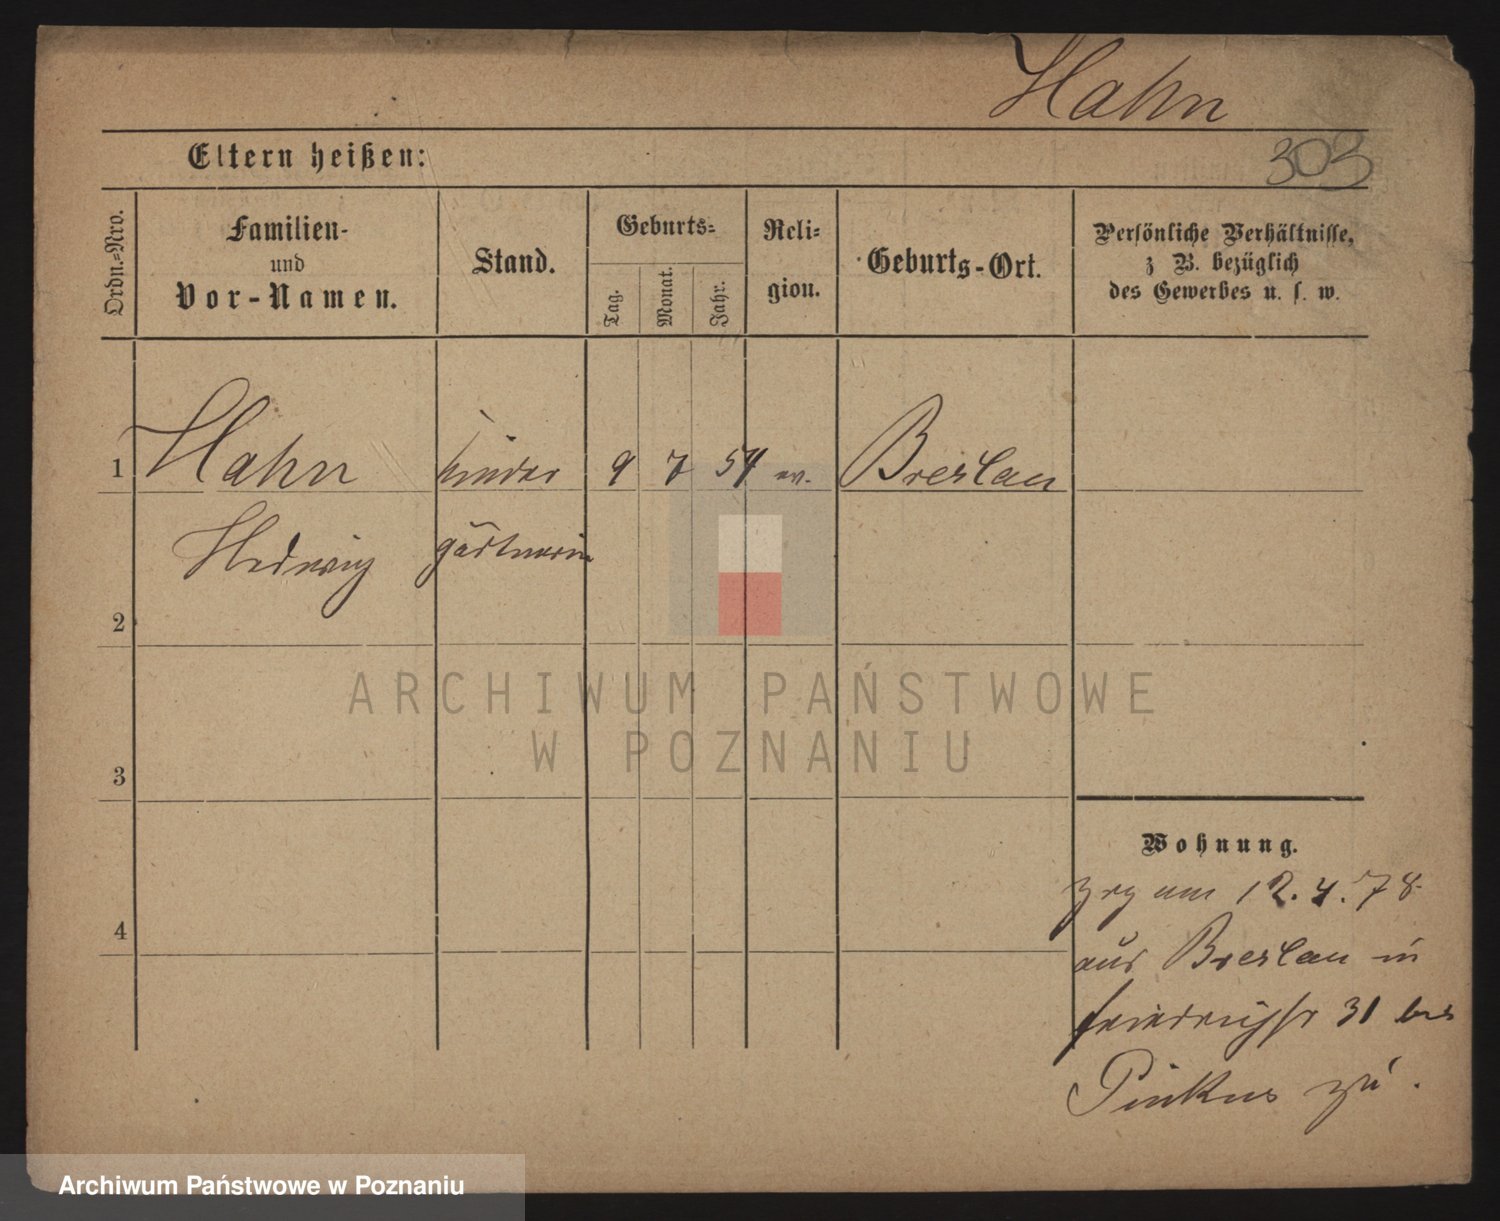 Hahn
303
Eltern heißen:
Ordn.-Nro.
Familien-
und
Vor-Namen.
Stand.
Geburts-
Tag.
Monat.
Jahr.
Reli-
gion.
Geburts-Ort.
Persönliche Verhältnisse,
z B. bezüglich
des Gewerbes u. s. w.
1 Hahn Kinder 9 7 54 ev. Breslau
Hedwig gärtnerin
2
ARCHIWUM PAŃSTWOWE
W POZNANIU
3
Wohnung.
zog am 12.4.78
4
aus Breslau in
Friedrichstr 31 bei
Pinkus zu.
Archiwum Państwowe w Poznaniu